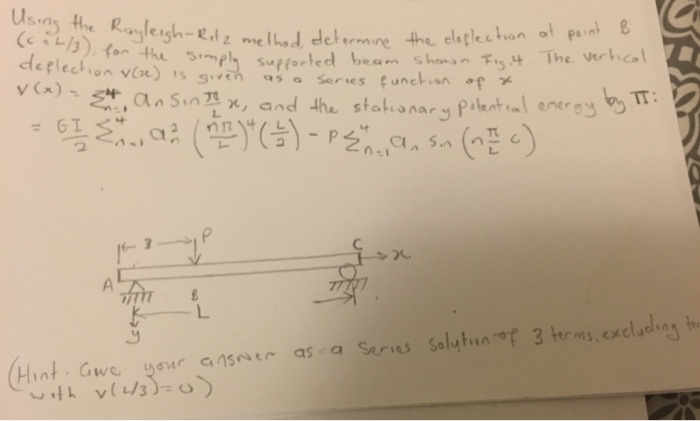 Using the Rayleigh-Ritz method, determine the deflection at point B
(c = L/3), for the simply supported beam shown Fig.4 The vertical
deflection v(x) is given as a series function of x
v(x) = Σ⁴ₙ₌₁ aₙ sin π/L x, and the stationary potential energy by π:
= EI/2 Σ⁴ₙ₌₁ aₙ² (nπ/L)⁴ (L/2) - P Σ⁴ₙ₌₁ aₙ sin (n π/L c)
3 P
C
x
A
B
L
y
(Hint. Give your answer as a series solution of 3 terms, excluding
with v(L/3)=0)